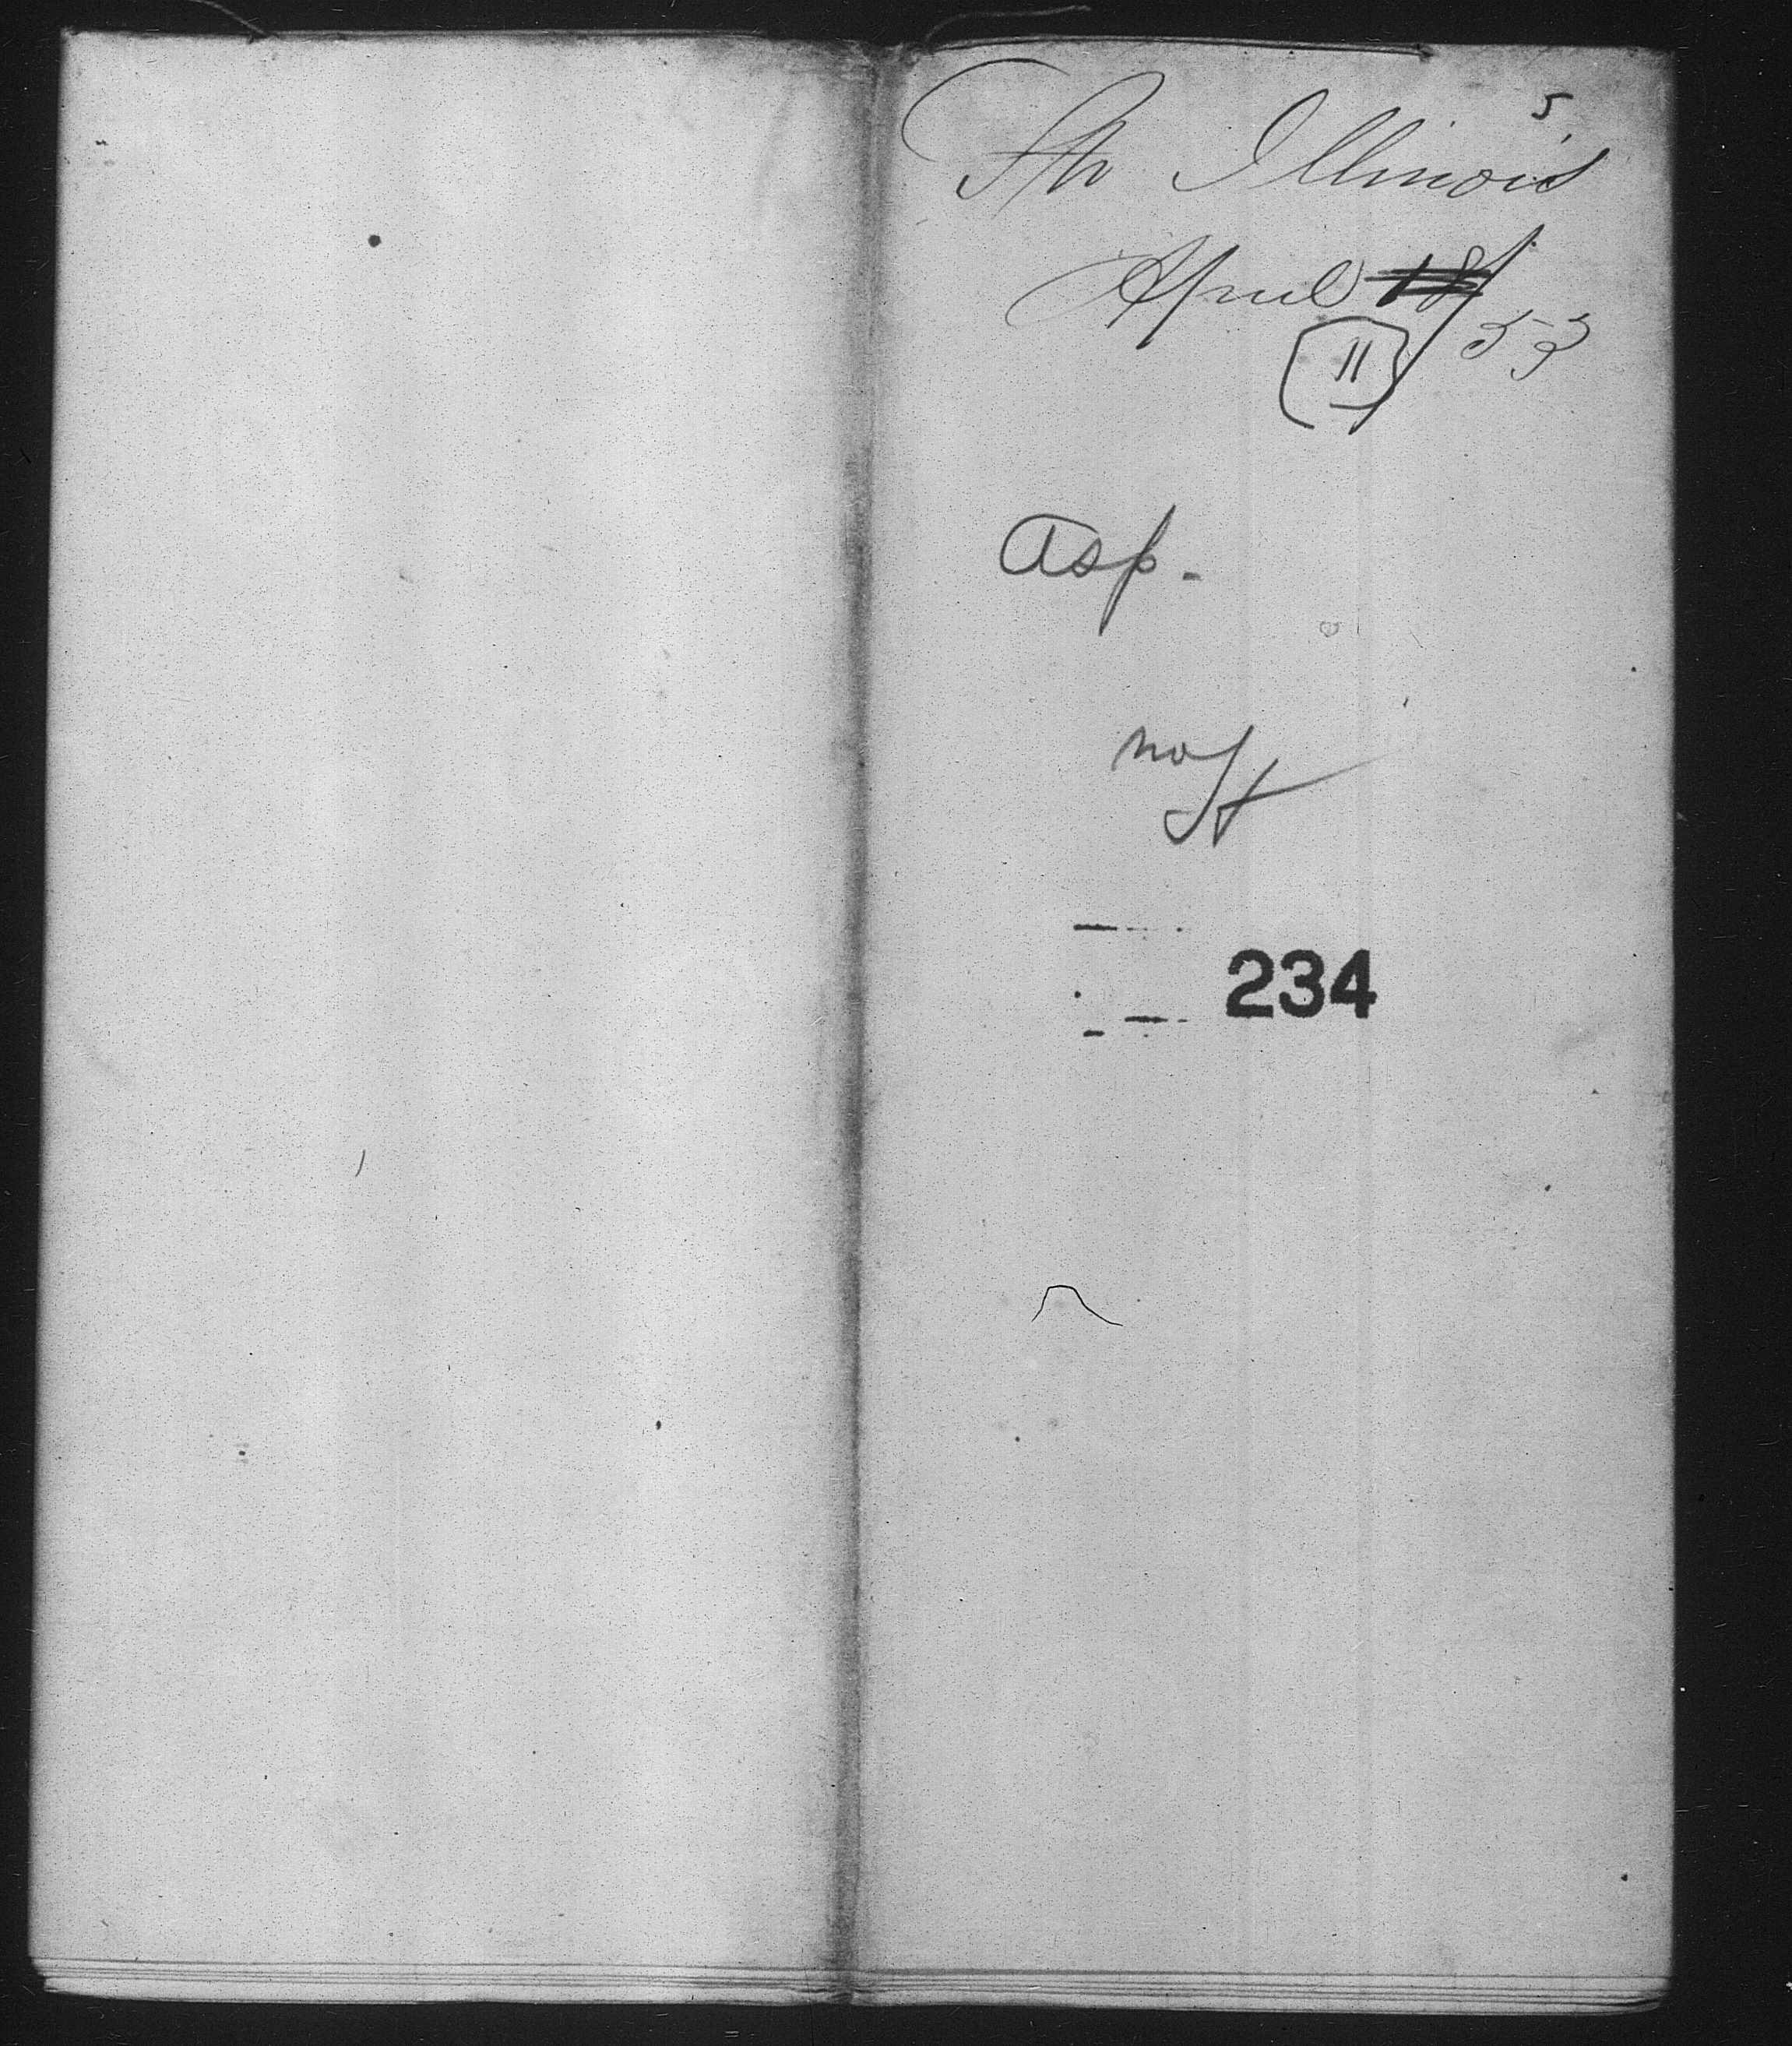 5
Str Illinois
April 18/53
11
Asp.
no
234